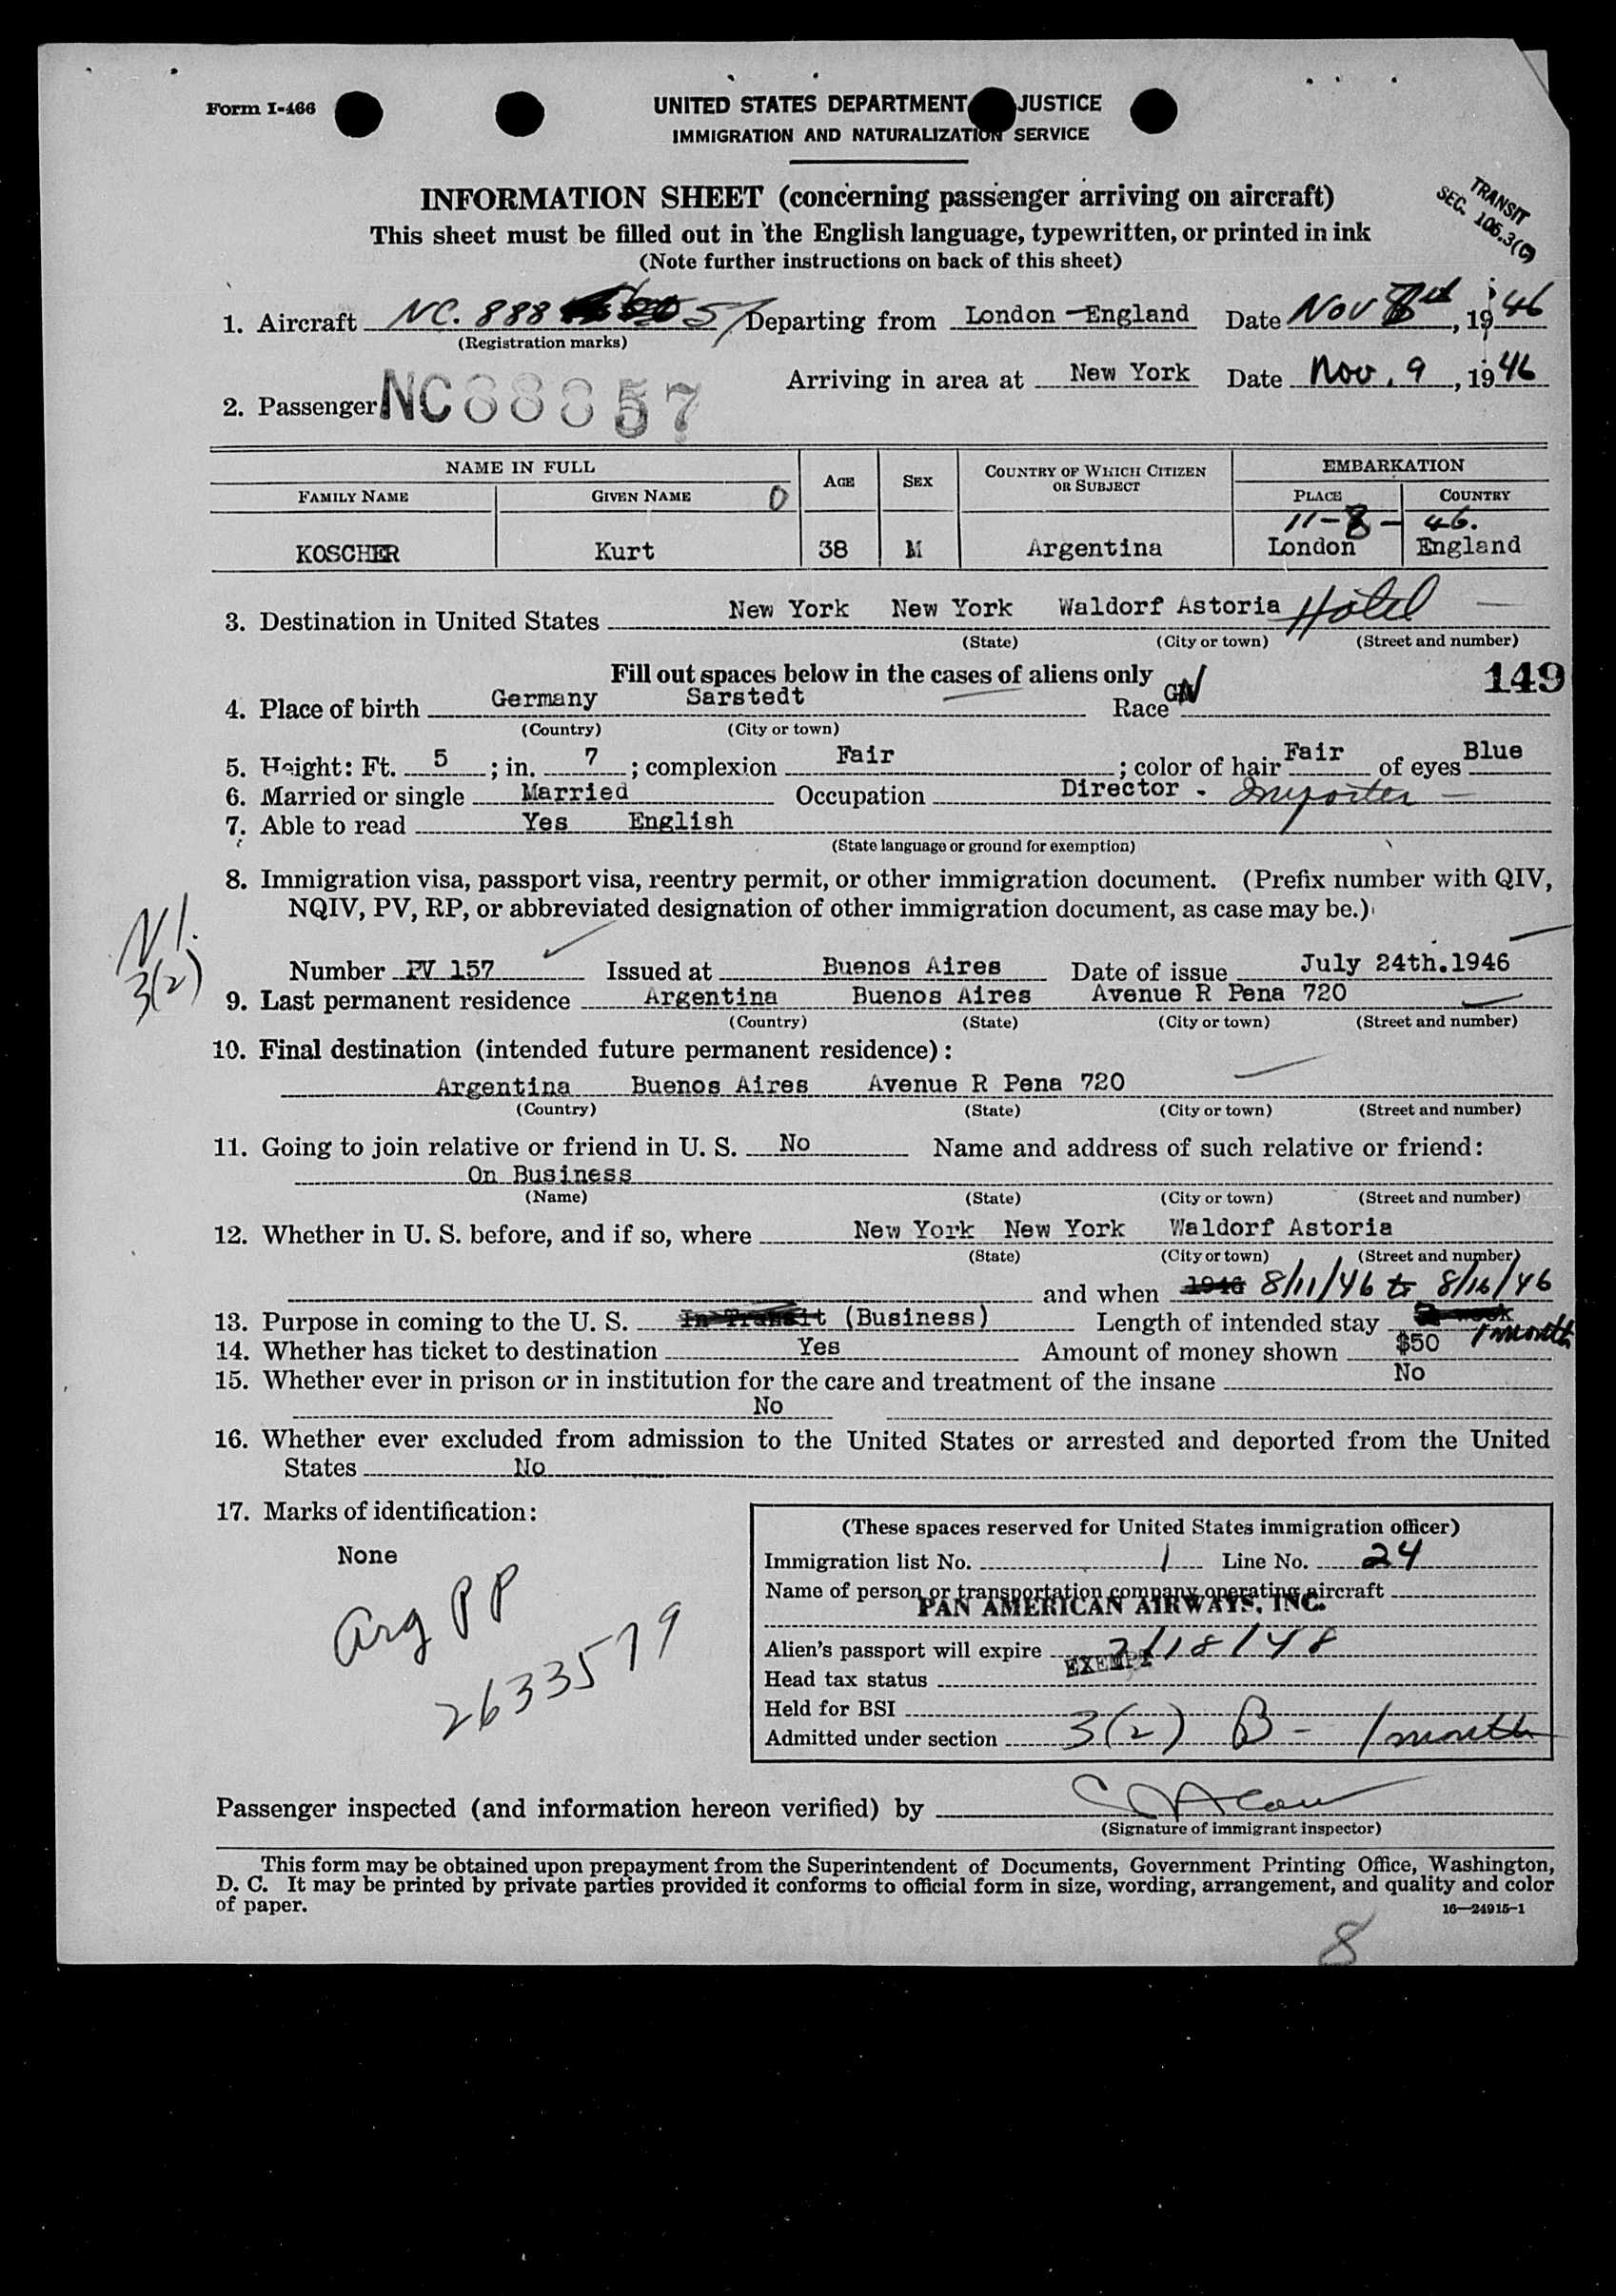 Form I-466
UNITED STATES DEPARTMENT JUSTICE
IMMIGRATION AND NATURALIZATION SERVICE
INFORMATION SHEET (concerning passenger arriving on aircraft)
TRANSIT
SEC. 106.3(C)
This sheet must be filled out in the English language, typewritten, or printed in ink
(Note further instructions on back of this sheet)
1. Aircraft NC. 888 57 Departing from London - England Date Nov 8th, 1946
(Registration marks)
Arriving in area at New York Date Nov. 9, 1946
2. Passenger NC88857
NAME IN FULL AGE SEX COUNTRY OF WHICH CITIZEN OR SUBJECT EMBARKATION
FAMILY NAME GIVEN NAME PLACE COUNTRY
11-8-46.
KOSCHER Kurt 38 M Argentina London England
3. Destination in United States New York New York Waldorf Astoria Hotel
(State) (City or town) (Street and number)
Fill out spaces below in the cases of aliens only 149
4. Place of birth Germany Sarstedt Race
(Country) (City or town)
5. Height: Ft. 5; in. 7; complexion Fair; color of hair Fair of eyes Blue
6. Married or single Married Occupation Director - Importer
7. Able to read Yes English
(State language or ground for exemption)
8. Immigration visa, passport visa, reentry permit, or other immigration document. (Prefix number with QIV,
NQIV, PV, RP, or abbreviated designation of other immigration document, as case may be.)
3(2)
Number PV 157 Issued at Buenos Aires Date of issue July 24th.1946
9. Last permanent residence Argentina Buenos Aires Avenue R Pena 720
(Country) (State) (City or town) (Street and number)
10. Final destination (intended future permanent residence):
Argentina Buenos Aires Avenue R Pena 720
(Country) (State) (City or town) (Street and number)
11. Going to join relative or friend in U. S. No Name and address of such relative or friend:
On Business
(Name) (State) (City or town) (Street and number)
12. Whether in U. S. before, and if so, where New York New York Waldorf Astoria
(State) (City or town) (Street and number)
and when 1946 8/11/46 to 8/16/46
13. Purpose in coming to the U. S. In Transit (Business) Length of intended stay 1 month
14. Whether has ticket to destination Yes Amount of money shown $50
15. Whether ever in prison or in institution for the care and treatment of the insane No
No
16. Whether ever excluded from admission to the United States or arrested and deported from the United
States No
17. Marks of identification:
None
Arg PP
2633579
(These spaces reserved for United States immigration officer)
Immigration list No. 1 Line No. 24
Name of person or transportation company operating aircraft
PAN AMERICAN AIRWAYS, INC.
Alien's passport will expire 2/18/48
Head tax status EXEMPT
Held for BSI
Admitted under section 3(2) B - 1 month
Passenger inspected (and information hereon verified) by
(Signature of immigrant inspector)
This form may be obtained upon prepayment from the Superintendent of Documents, Government Printing Office, Washington,
D. C. It may be printed by private parties provided it conforms to official form in size, wording, arrangement, and quality and color
of paper.
16—24915-1
8